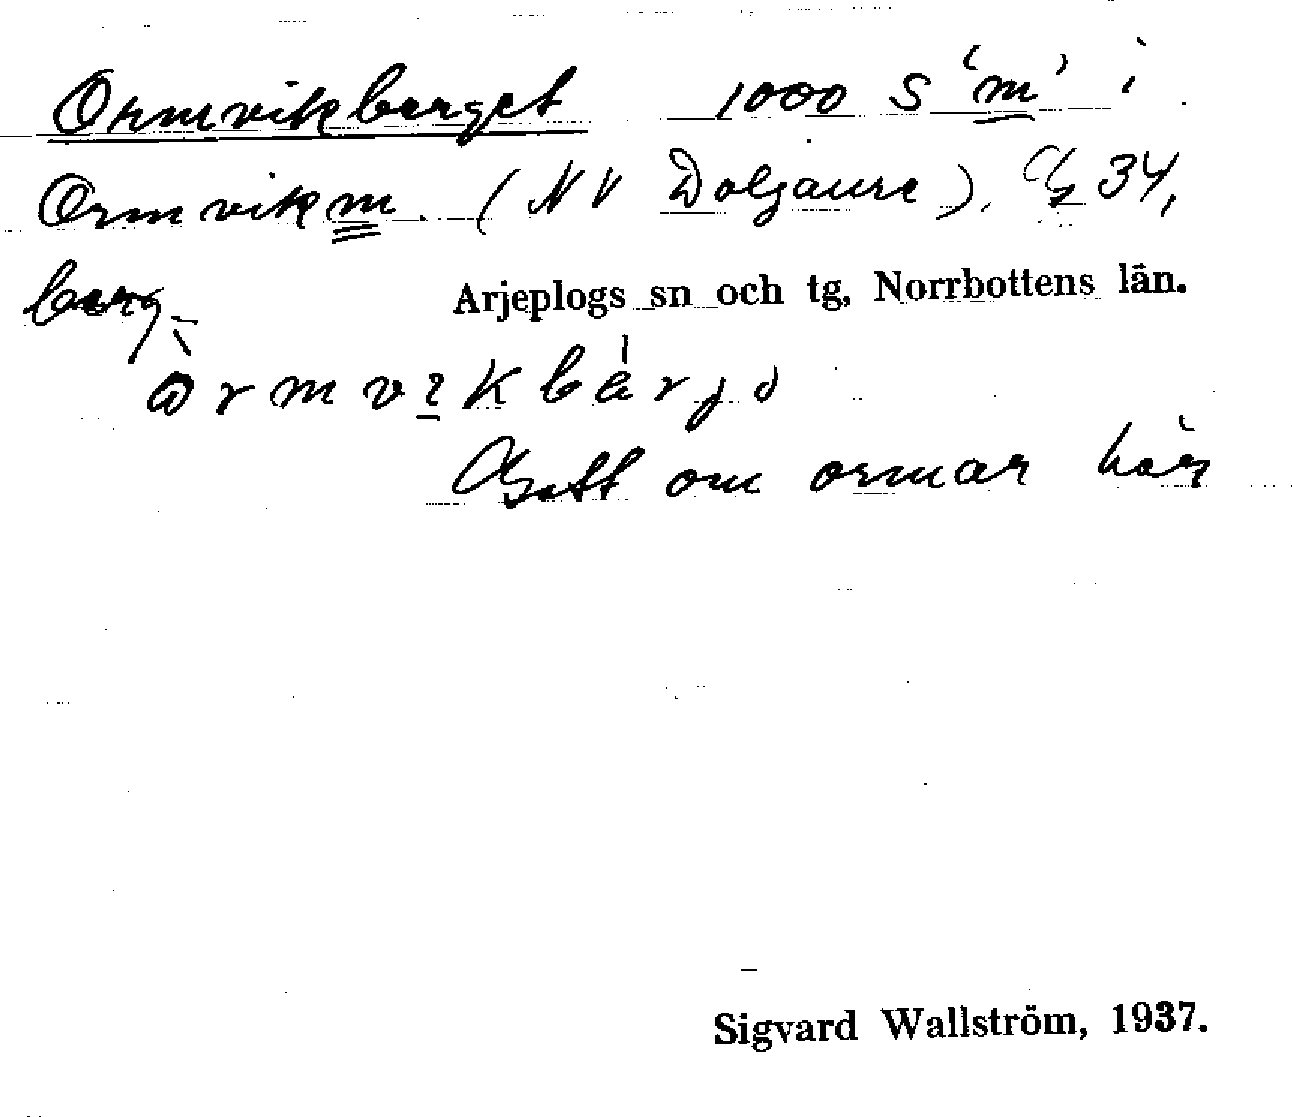 Ormvikberget 1000 S 'm' i
Ormvikm. (NV Doljaure). G 34,
berg.
Arjeplogs sn och tg, Norrbottens län.
Gott om ormar här
Sigvard Wallström, 1937.